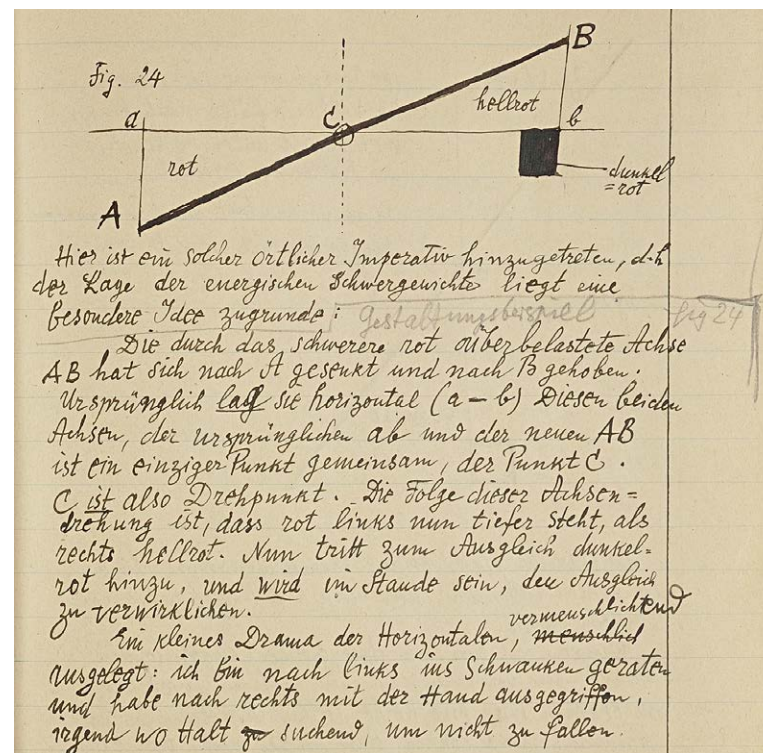 Fig. 24
B
hellrot
a
C
b
rot
dunkel
=rot
A
Hier ist ein solcher örtlicher Imperativ hinzugetreten, d.h
der Lage der energischen Schwergewichte liegt eine
besondere Idee zugrunde: Gestaltungsbeispiel fig 24
Die durch das schwerere rot überbelastete Achse
AB hat sich nach A gesenkt und nach B gehoben.
Ursprünglich lag sie horizontal (a – b) Diesen beiden
Achsen, der ursprünglichen ab und der neuen AB
ist ein einziger Punkt gemeinsam, der Punkt C.
C ist also Drehpunkt. Die Folge dieser Achsen=
drehung ist, dass rot links nun tiefer steht, als
rechts hellrot. Nun tritt zum Ausgleich dunkel=
rot hinzu, und wird im Stande sein, den Ausgleich
zu verwirklichen.
vermenschlichend
Ein kleines Drama der Horizontalen, menschlich
ausgelegt: ich bin nach links ins Schwanken geraten
und habe nach rechts mit der Hand ausgegriffen,
irgend wo Halt zu suchend, um nicht zu fallen.